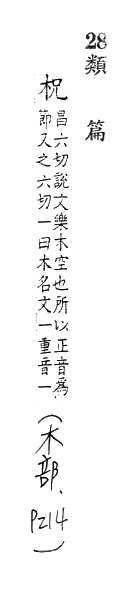 28類篇
柷
昌六切說文樂木空也所以正音為
節又之六切一曰木名文一重音一
(木部、P214)